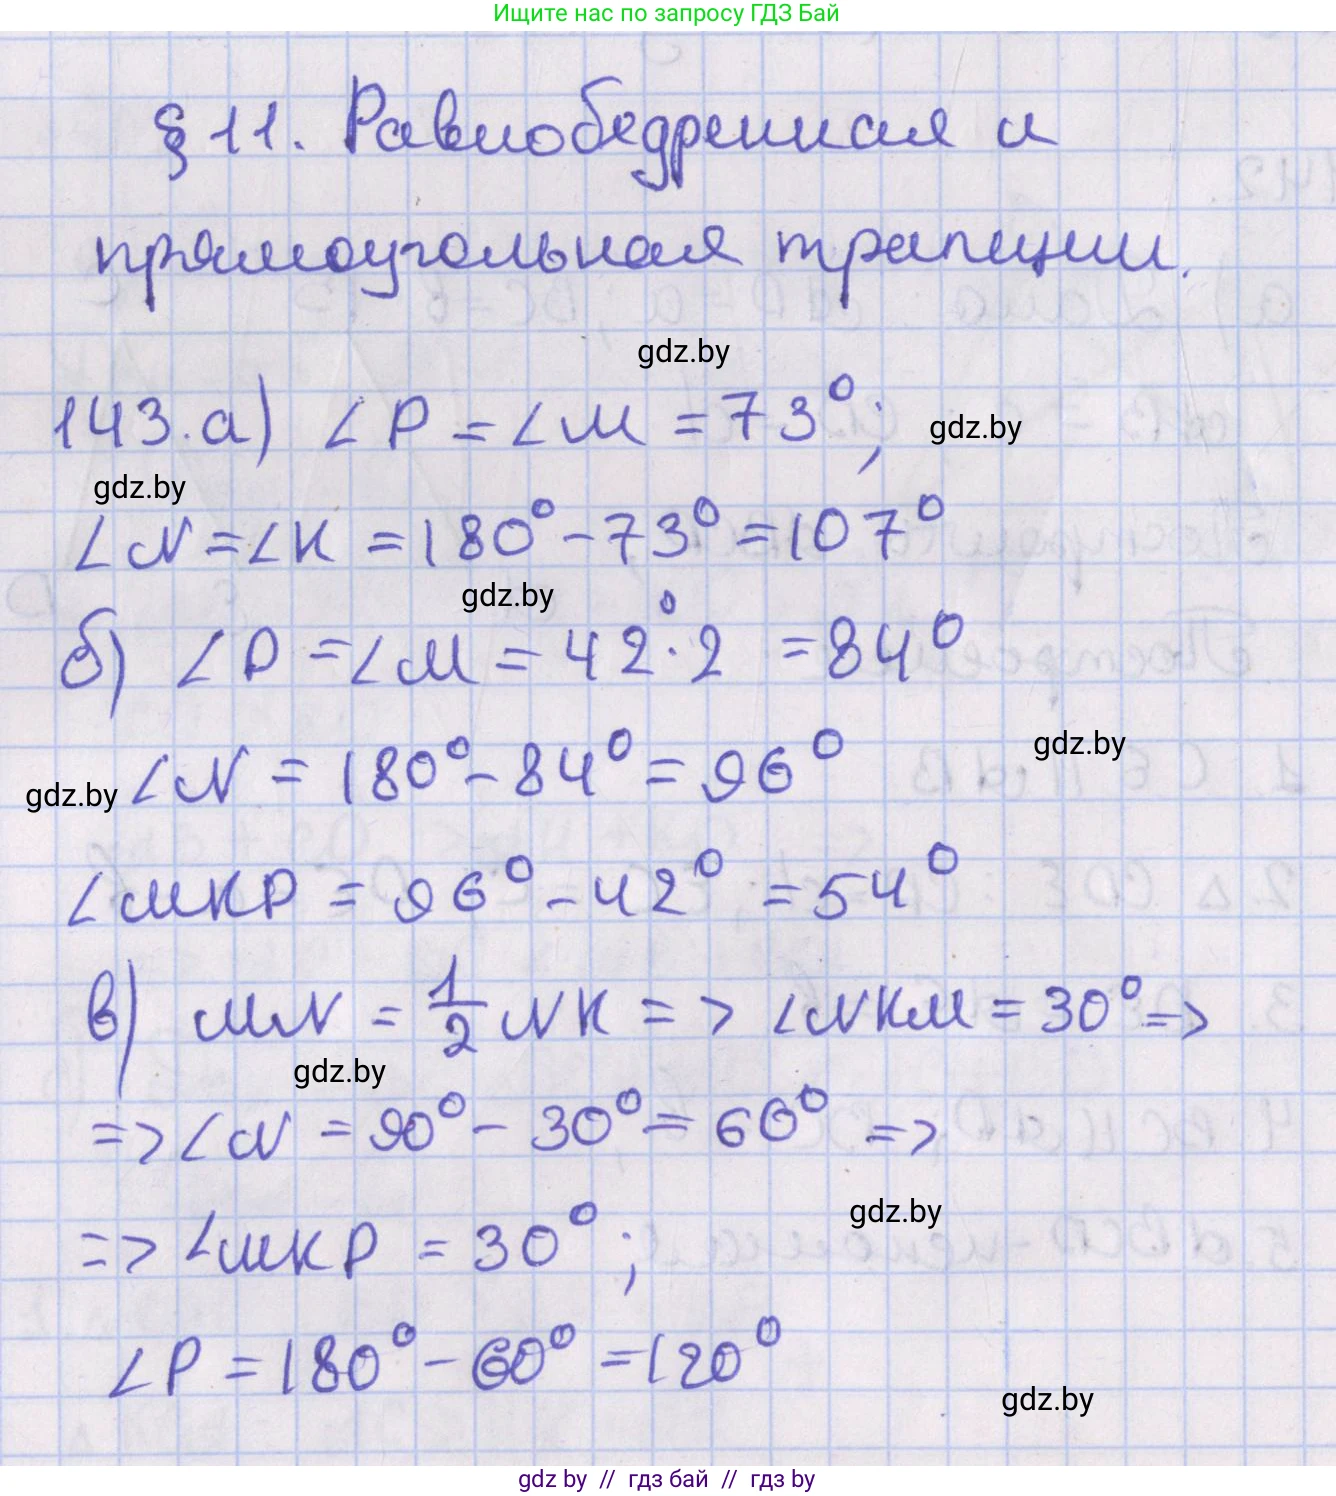 Ищите нас по запросу ГДЗ Бай
§ 11. Равнобедренная и
прямоугольная трапеции.
gdz.by
143.а) ∠P = ∠M = 73°;
gdz.by
gdz.by
∠N = ∠K = 180° - 73° = 107°
gdz.by
б) ∠P = ∠M = 42° · 2 = 84°
∠N = 180° - 84° = 96°
gdz.by
gdz.by
∠MKP = 96° - 42° = 54°
в) MN = 1/2 NK => ∠NKM = 30° =>
gdz.by
=> ∠N = 90° - 30° = 60° =>
gdz.by
=> ∠MKP = 30°;
∠P = 180° - 60° = 120°
gdz.by
gdz by // гдз бай // гдз by